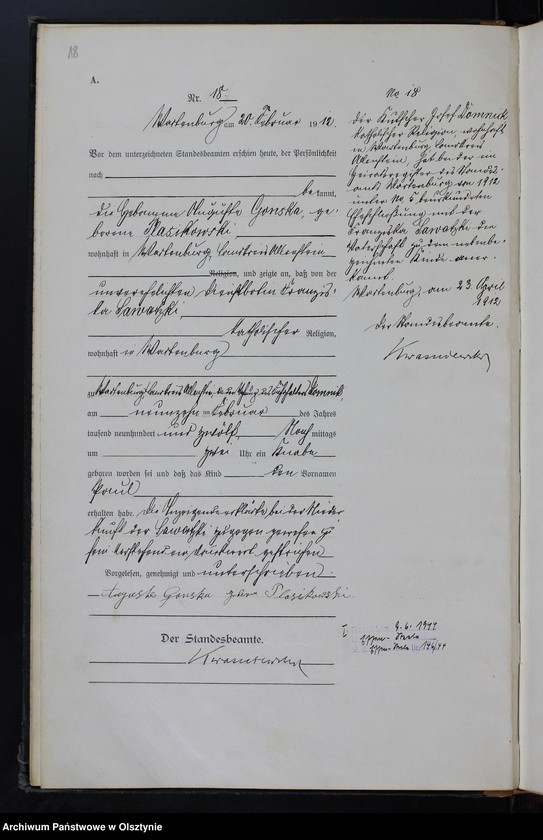 18
A.
Nr. 18.
Wartenburg am 20. Februar 1912.
Vor dem unterzeichneten Standesbeamten erschien heute, der Persönlichkeit
nach
be kannt,
die Hebamme Auguste Gonska, ge-
borene Plasikowski
wohnhaft in Wartenburg Landkreis Allenstein
Religion, und zeigte an, daß von der
unverehelichten Dienstbotin Franzis-
ka Sawatzki,
katholischer Religion,
wohnhaft in Wartenburg
zu Wartenburg Landkreis Allenstein, in der Wohnung des Domnik,
am neunzehn ten Februar des Jahres
tausend neunhundert und zwölf Nach mittags
um zwei Uhr ein Knabe
geboren worden sei und daß das Kind den Vornamen
Paul
erhalten habe. Die Anzeigende erklärte bei der Nieder-
kunft der Sawatzki zugegen gewesen zu
sein. Vorstehend ein Druckwort gestrichen
Vorgelesen, genehmigt und unterschrieben.
Auguste Gonska geborene Plasikowski
Der Standesbeamte.
No 18
Der Kutscher Josef Domnik
katholischer Religion, wohnhaft
in Wartenburg Landkreis
Allenstein, hat bei der im
Heiratsregister des Standes-
amts Wartenburg von 1912
unter No 6 beurkundeten
Eheschließung mit der
Franziska Sawatzki die
Vaterschaft zu dem nebenbe-
zeichneten Kinde aner-
kannt.
Wartenburg am 23. April
1912
Der Standesbeamte.
Archiwum Państwowe w Olsztynie